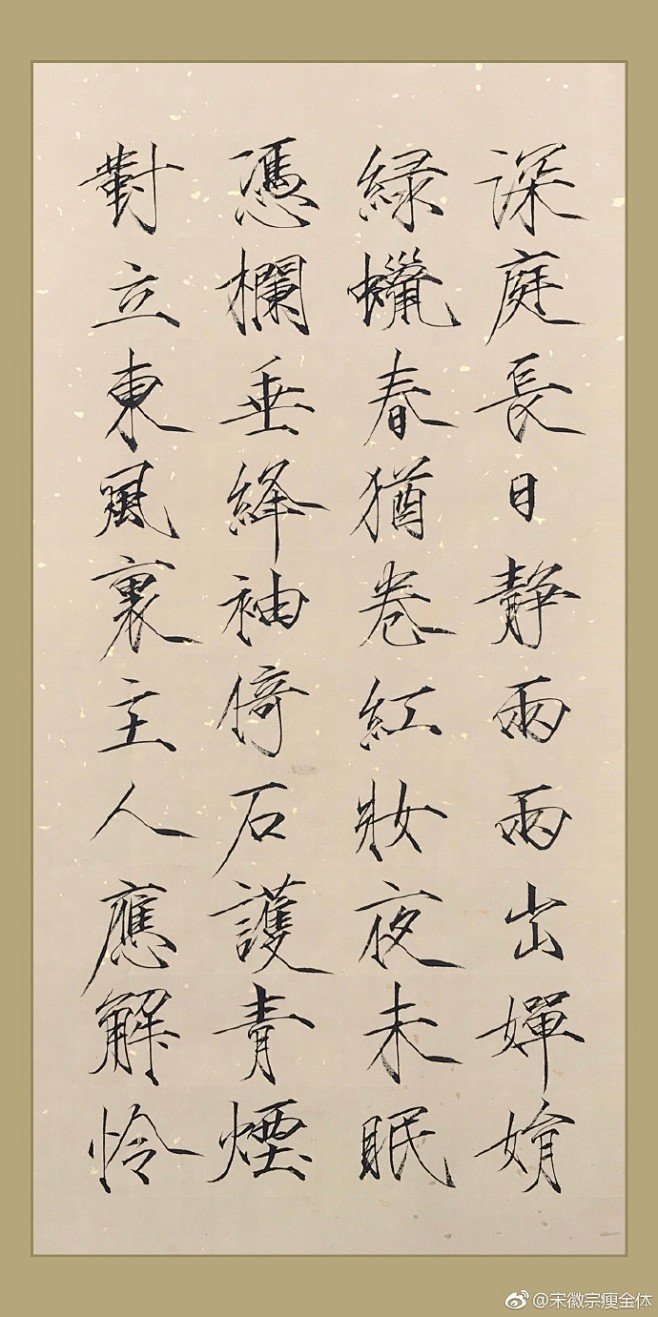 深庭長日靜兩兩出嬋娟
緑蠟春猶卷紅妝夜未眠
憑欄垂絳袖倚石護青煙
對立東風裏主人應解憐
@宋徽宗瘦金体